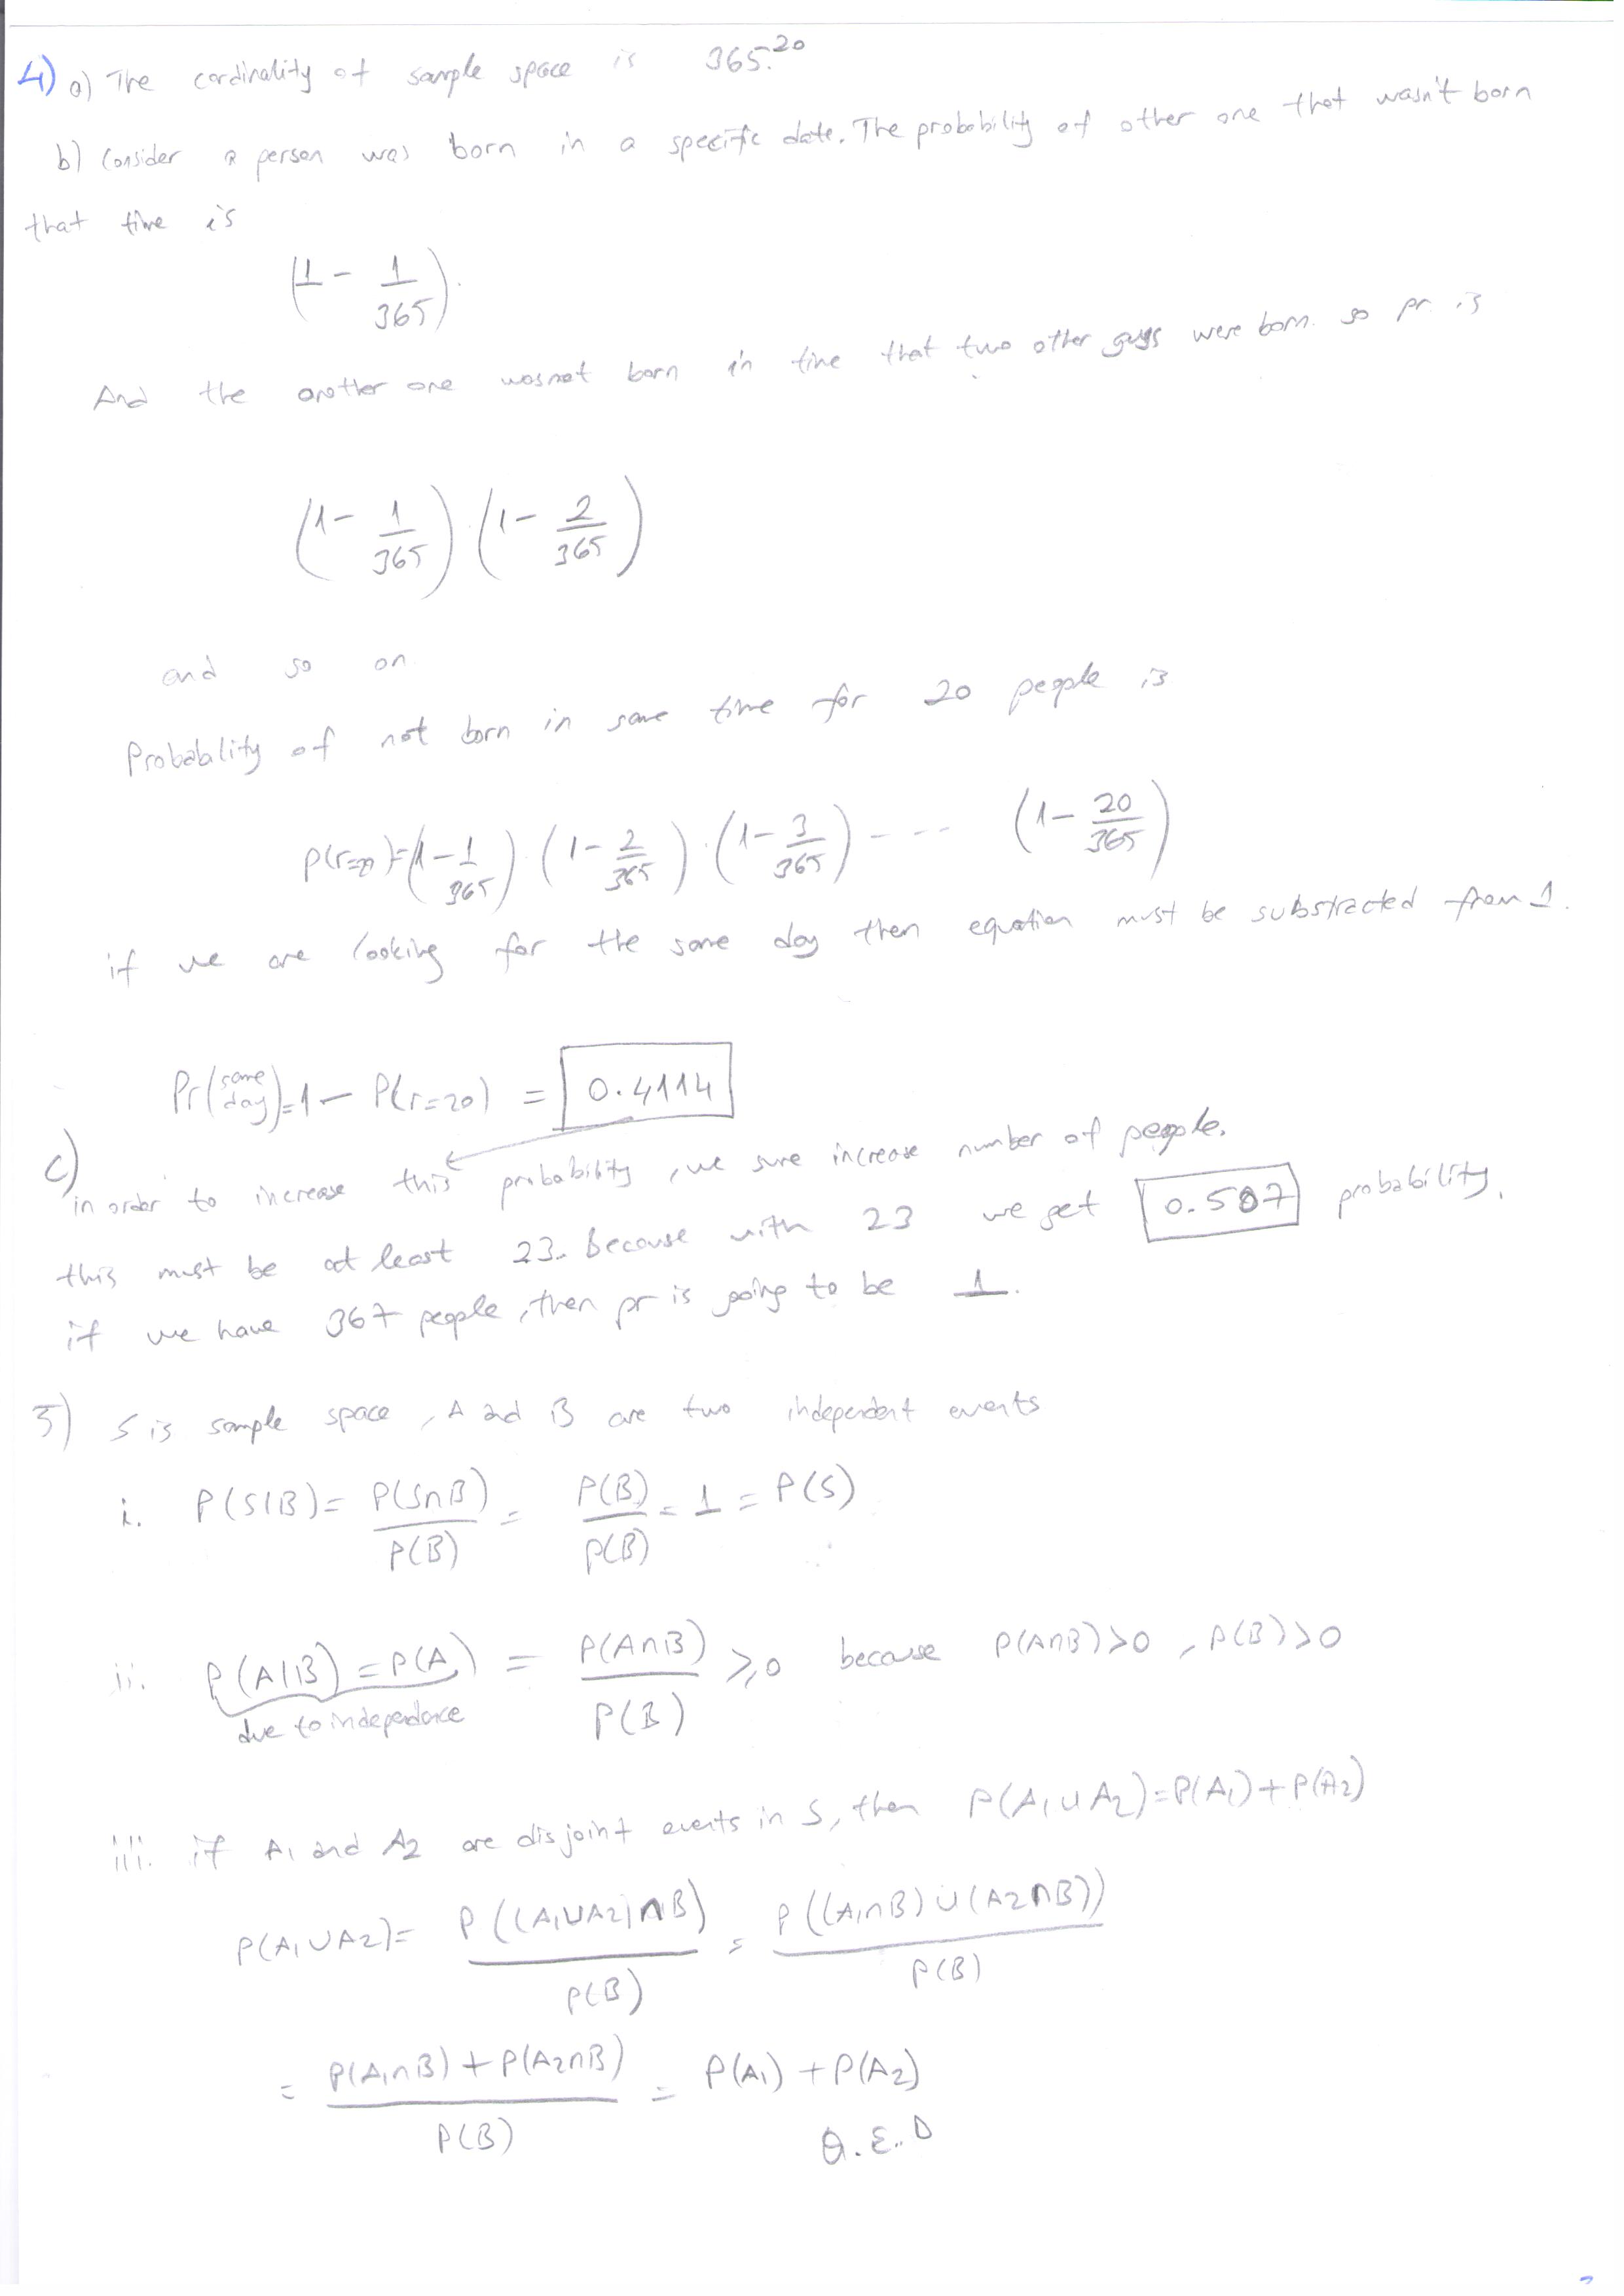 4) a) The cardinality of sample space is 365.^20
b) Consider a person was born in a specific date. The probability of other one that wasn't born
that time is
(1 - 1/365).
And the another one was not born in time that two other guys were born. so pr. is
(1 - 1/365) (1 - 2/365)
and so on
Probability of not born in same time for 20 people is
P(r=20)=(1 - 1/365) . (1 - 2/365) . (1 - 3/365) ---- (1 - 20/365)
if we are looking for the same day then equation must be substracted from 1.
Pr(same day)=1 - P(r=20) = 0.4114
c)
in order to increase this probability, we sure increase number of people.
this must be at least 23. Because with 23 we get 0.507 probability.
if we have 367 people, then pr is going to be 1.
5) S is sample space, A and B are two independent events
i. P(S|B) = P(S∩B)/P(B) = P(B)/P(B) = 1 = P(S)
ii. P(A|B) = P(A) = P(A∩B)/P(B) ≥ 0 because P(A∩B)>0, P(B)>0
due to independence
iii. if A1 and A2 are disjoint events in S, then P(A1∪A2)=P(A1)+P(A2)
P(A1∪A2)= P((A1∪A2)∩B)/P(B) = P((A1∩B)∪(A2∩B))/P(B)
= P(A1∩B)+P(A2∩B)/P(B) = P(A1)+P(A2)
Q.E.D